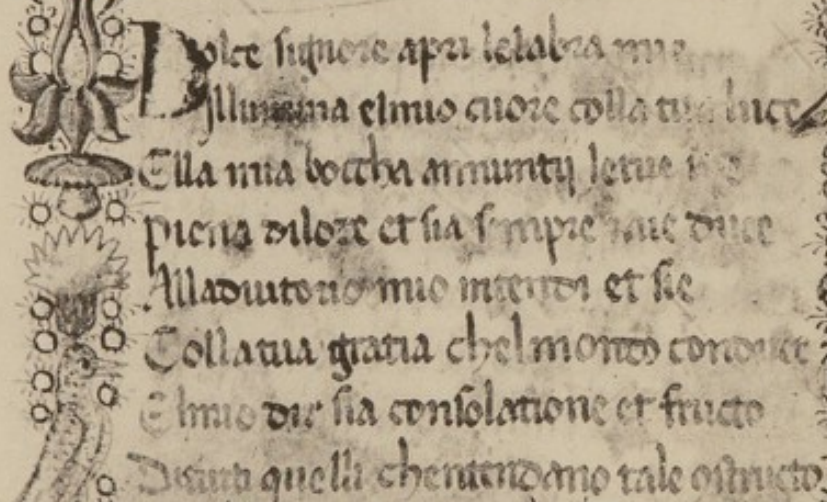 Dolce signore apri lelabra mie
Illumina elmio cuore colla tua luce
Ella mia boccha annuntij letue
piena dilore et sia sempre mie duce
Alladiutorio mio intendi et sie
Colla tua gratia chelmondo conduce
Elmio dir sia consolatione et fructo
quelli chentendano tale